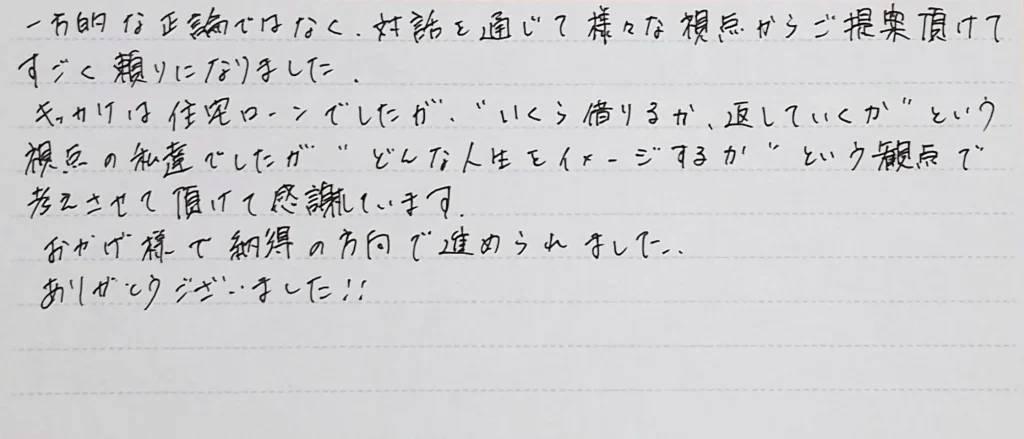 一方的な正論ではなく、対話を通じて様々な視点からご提案頂けて
すごく頼りになりました。
きっかけは住宅ローンでしたが、"いくら借りるか、返していくか"という
視点の私達でしたが"どんな人生をイメージするか"という観点で
考えさせて頂けて感謝しています。
おかげ様で納得の方向で進められました。
ありがとうございました!!